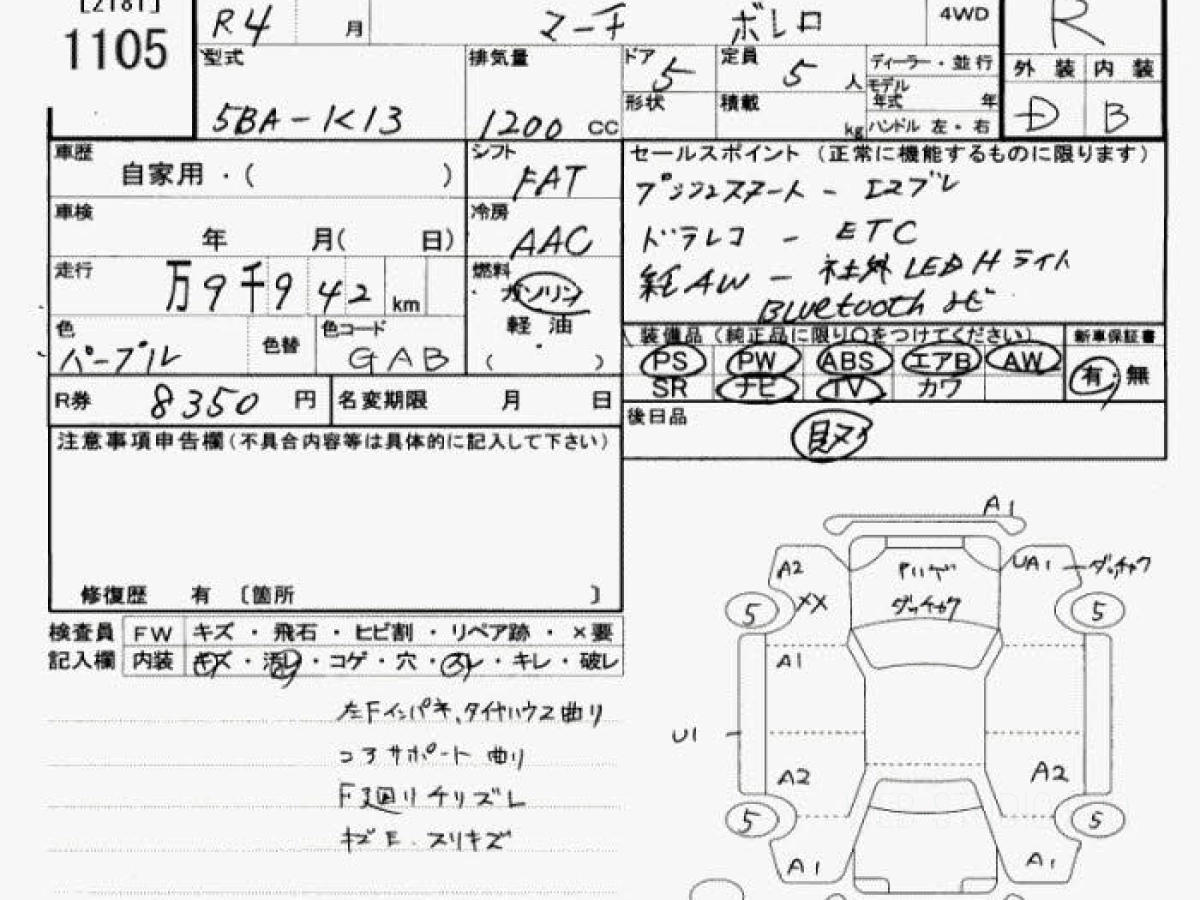 [2181]
1105
R4 月 マーチ ボレロ 4WD R
型式 5BA-K13
排気量 1200 CC
ドア 5 定員 5 人
形状 積載 kg
ディーラー・並行
モデル年式 年
ハンドル 左・右
外装 内装
D B
車歴 自家用・( )
シフト FAT
車検 年 月( 日)
冷房 AAC
走行 万9千942 km
燃料 ガソリン
軽油
( )
色 パープル 色替 色コード GAB
R券 8350 円 名変期限 月 日
セールスポイント (正常に機能するものに限ります)
プッシュスタート - エマブレ
ドラレコ - ETC
純AW - 社外LEDHライト
Bluetooth ナビ
装備品(純正品に限り○をつけてください) 新車保証書
PS PW ABS エアB AW 有・無
SR ナビ TV カワ
後日品
取
注意事項申告欄(不具合内容等は具体的に記入して下さい)
修復歴 有 〔箇所 〕
検査員 FW キズ・飛石・ヒビ割・リペア跡・×要
記入欄 内装 キズ・汚レ・コゲ・穴・スレ・キレ・破レ
左Fインパネ、タイヤハウス曲り
コアサポート曲り
F廻りチリズレ
キズE.スリキズ
A1
A2 UA1 ダッチャク
XX ダッチャク
5 5
A1
U1
A2 A2
5 5
A1 A1